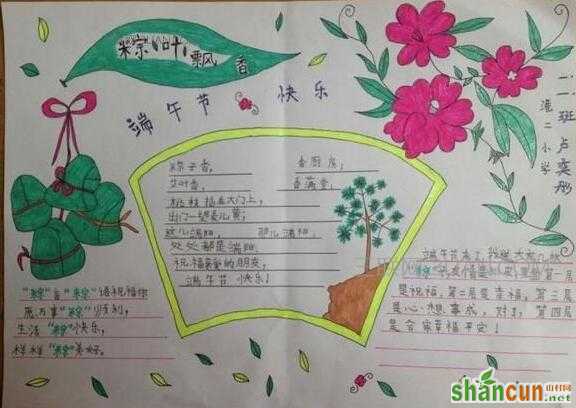 粽叶飘香
端午节快乐
二二班 卢奕彤
淮二小学
粽子香，
香厨房；
艾叶香，
香满堂；
桃枝插在大门上，
出门一望麦儿黄；
这儿端阳，那儿端阳，
处处都是端阳。
祝福亲爱的朋友，
端午节快乐！
"粽"言"粽"语祝福你
愿万事"粽"顺利，
生活"粽"快乐，
样样"粽"美好。
端午节来了，我做大大
是祝福，第二层是幸福，第三层
是心想事成，第四层
是合家幸福平安！
shancun 山村网
.net